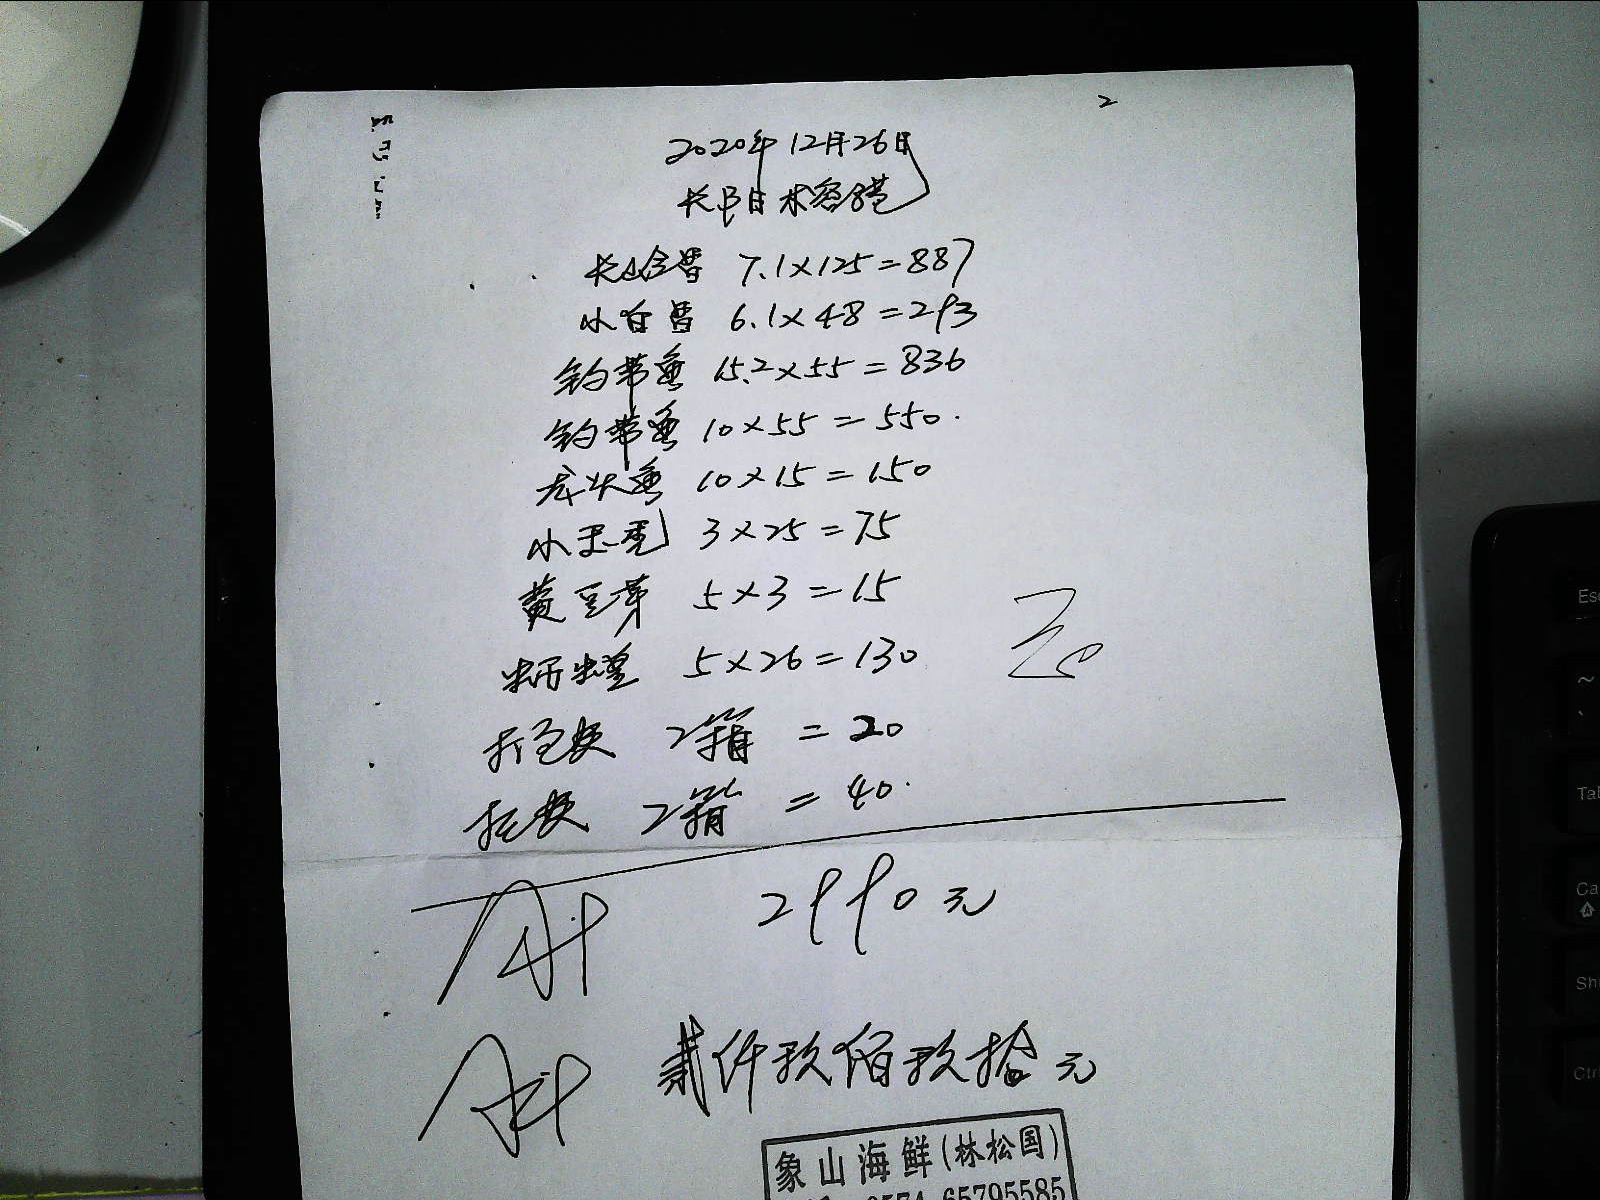 2
2020年12月26日
7.1×125=887
小白 6.1×48=293
钓带鱼 15.2×55=836
钓带鱼 10×55=550.
龙头鱼 10×15=150
小 3×25=75
黄豆芽 5×3=15
5×26=130
打包费 2箱 =20
托费 2箱 =40.
2990元
贰仟玖佰玖拾元
象山海鲜(林松国)
0574 65795585
Esc
~
Tab
Ctrl